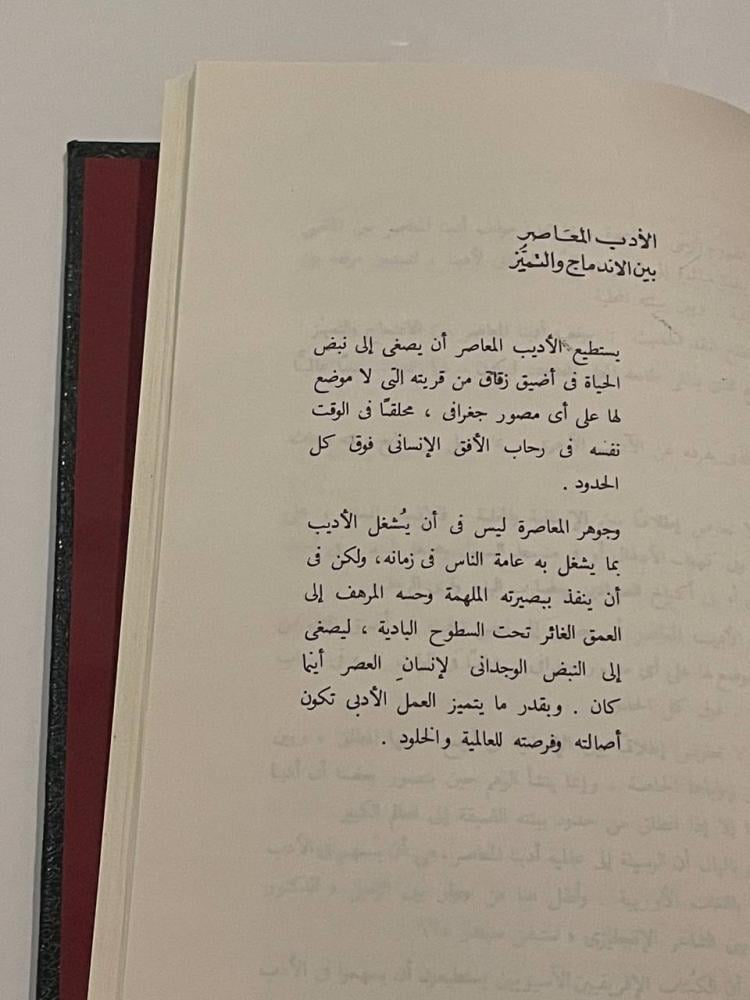 الأدب المعَاصر
بين الاندماج والتميّز
يستطيع الأديب المعاصر أن يصغى إلى نبض
الحياة فى أضيق زقاق من قريته التى لا موضع
لها على أى مصور جغرافى ، محلقًا فى الوقت
نفسه فى رحاب الأفق الإنسانى فوق كل
الحدود .
وجوهر المعاصرة ليس فى أن يُشغل الأديب
بما يشغل به عامة الناس فى زمانه، ولكن فى
أن ينفذ ببصيرته الملهمة وحسه المرهف إلى
العمق الغائر تحت السطوح البادية ، ليصغى
إلى النبض الوجدانى لإنسانِ العصر أينما
كان . وبقدر ما يتميز العمل الأدبى تكون
أصالته وفرصته للعالمية والخلود .